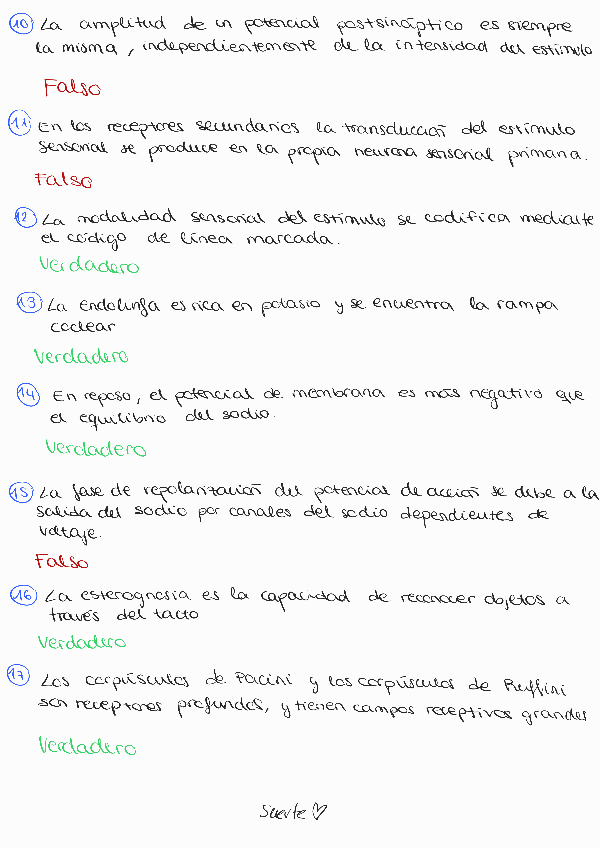 10) La amplitud de un potencial postsináptico es siempre
la misma, independientemente de la intensidad del estímulo
Falso
11) En los receptores secundarios la transducción del estímulo
sensorial se produce en la propia neurona sensorial primaria.
Falso
12) La modalidad sensorial del estímulo se codifica mediante
el código de línea marcada.
Verdadero
13) La endolinfa es rica en potasio y se encuentra la rampa
coclear
Verdadero
14) En reposo, el potencial de membrana es más negativo que
el equilibrio del sodio.
Verdadero
15) La fase de repolarización del potencial de acción se debe a la
salida del sodio por canales del sodio dependientes de
voltaje.
Falso
16) La esterognosia es la capacidad de reconocer objetos a
través del tacto
Verdadero
17) Los corpúsculos de Pacini y los corpúsculos de Ruffini
son receptores profundos, y tienen campos receptivos grandes
Verdadero
Suerte ♡